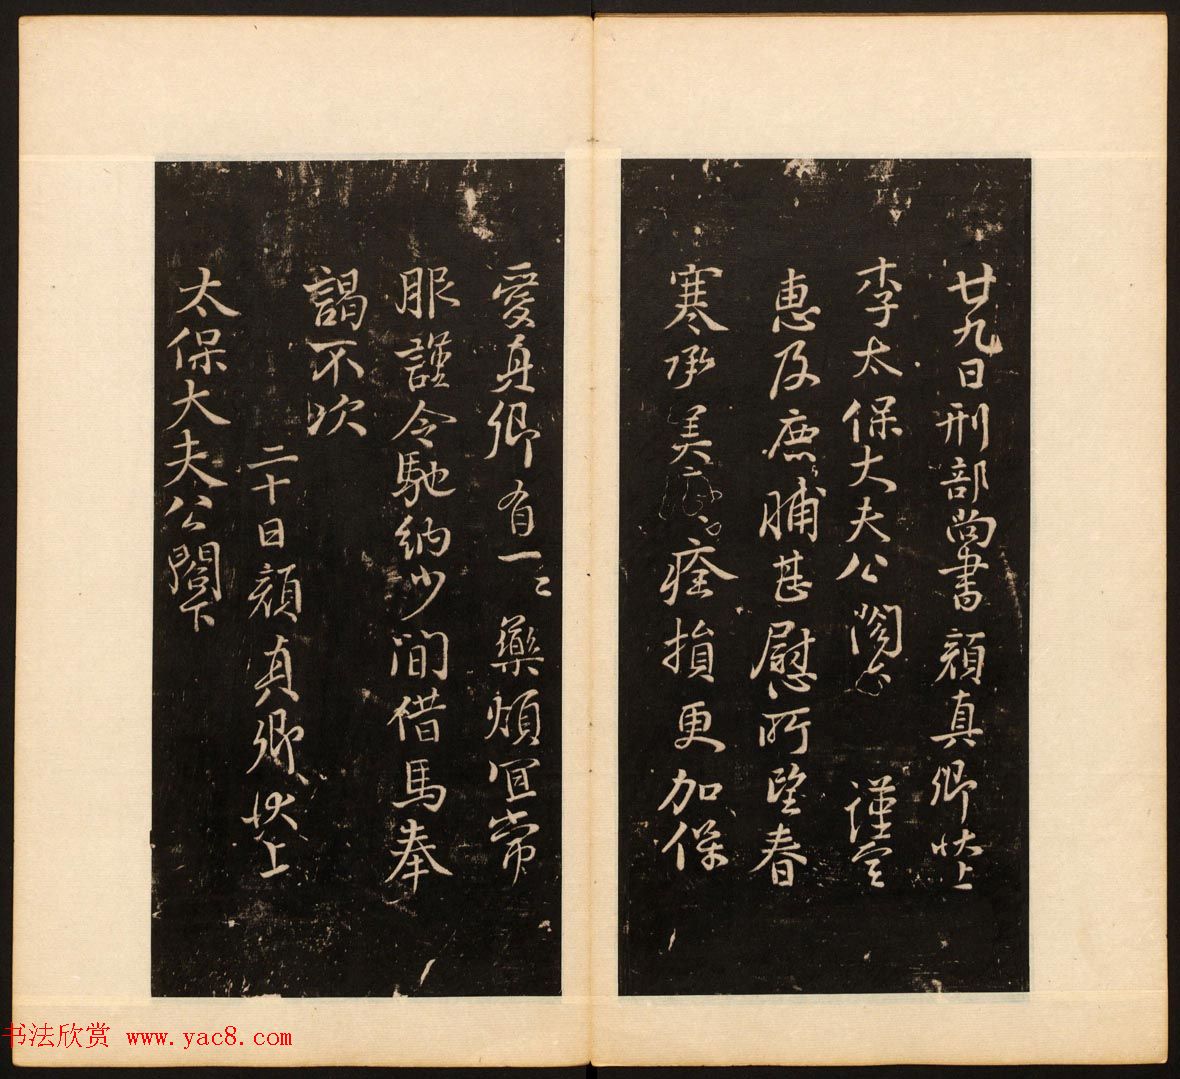 廿九日刑部尚書顏真卿狀上
李太保大夫公閤下 謹空
惠及鹿脯甚慰所望春
寒承美疹痊損更加保
愛真卿有一二藥煩宜常
服謹令馳納少間借馬奉
謁不次
二十日顏真卿狀上
太保大夫公閤下
书法欣赏 www.yac8.com